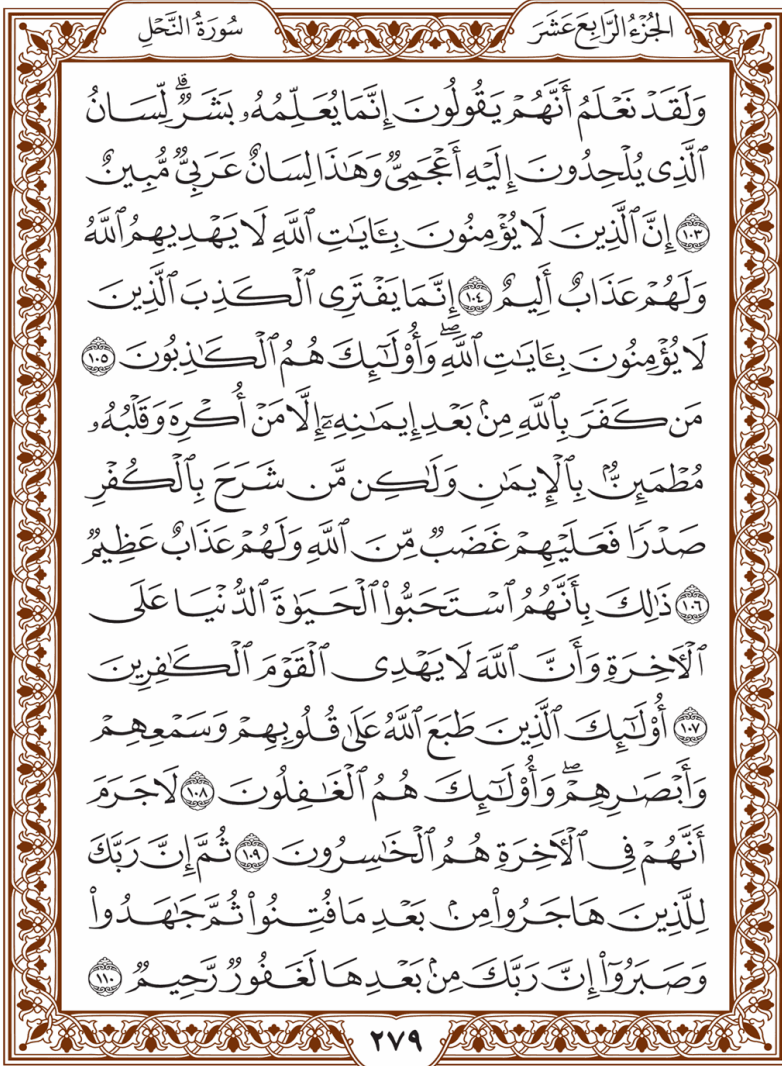 الجُزْءُ الرَّابِعَ عَشَرَ
سُورَةُ النَّحْلِ
وَلَقَدْ نَعْلَمُ أَنَّهُمْ يَقُولُونَ إِنَّمَا يُعَلِّمُهُۥ بَشَرٞۗ لِّسَانُ
ٱلَّذِي يُلْحِدُونَ إِلَيْهِ أَعْجَمِيّٞ وَهَٰذَا لِسَانٌ عَرَبِيّٞ مُّبِينٌ
١٠٣ إِنَّ ٱلَّذِينَ لَا يُؤْمِنُونَ بِـَٔايَٰتِ ٱللَّهِ لَا يَهْدِيهِمُ ٱللَّهُ
وَلَهُمْ عَذَابٌ أَلِيمٌ ١٠٤ إِنَّمَا يَفْتَرِي ٱلْكَذِبَ ٱلَّذِينَ
لَا يُؤْمِنُونَ بِـَٔايَٰتِ ٱللَّهِۖ وَأُوْلَٰٓئِكَ هُمُ ٱلْكَٰذِبُونَ ١٠٥
مَن كَفَرَ بِٱللَّهِ مِنۢ بَعْدِ إِيمَٰنِهِۦٓ إِلَّا مَنْ أُكْرِهَ وَقَلْبُهُۥ
مُطْمَئِنُّۢ بِٱلْإِيمَٰنِ وَلَٰكِن مَّن شَرَحَ بِٱلْكُفْرِ
صَدْرٗا فَعَلَيْهِمْ غَضَبٞ مِّنَ ٱللَّهِ وَلَهُمْ عَذَابٌ عَظِيمٞ
١٠٦ ذَٰلِكَ بِأَنَّهُمُ ٱسْتَحَبُّواْ ٱلْحَيَوٰةَ ٱلدُّنْيَا عَلَى
ٱلْأٓخِرَةِ وَأَنَّ ٱللَّهَ لَا يَهْدِي ٱلْقَوْمَ ٱلْكَٰفِرِينَ
١٠٧ أُوْلَٰٓئِكَ ٱلَّذِينَ طَبَعَ ٱللَّهُ عَلَىٰ قُلُوبِهِمْ وَسَمْعِهِمْ
وَأَبْصَٰرِهِمْۖ وَأُوْلَٰٓئِكَ هُمُ ٱلْغَٰفِلُونَ ١٠٨ لَا جَرَمَ
أَنَّهُمْ فِي ٱلْأٓخِرَةِ هُمُ ٱلْخَٰسِرُونَ ١٠٩ ثُمَّ إِنَّ رَبَّكَ
لِلَّذِينَ هَاجَرُواْ مِنۢ بَعْدِ مَا فُتِنُواْ ثُمَّ جَٰهَدُواْ
وَصَبَرُوٓاْ إِنَّ رَبَّكَ مِنۢ بَعْدِهَا لَغَفُورٞ رَّحِيمٞ ١١٠
٢٧٩